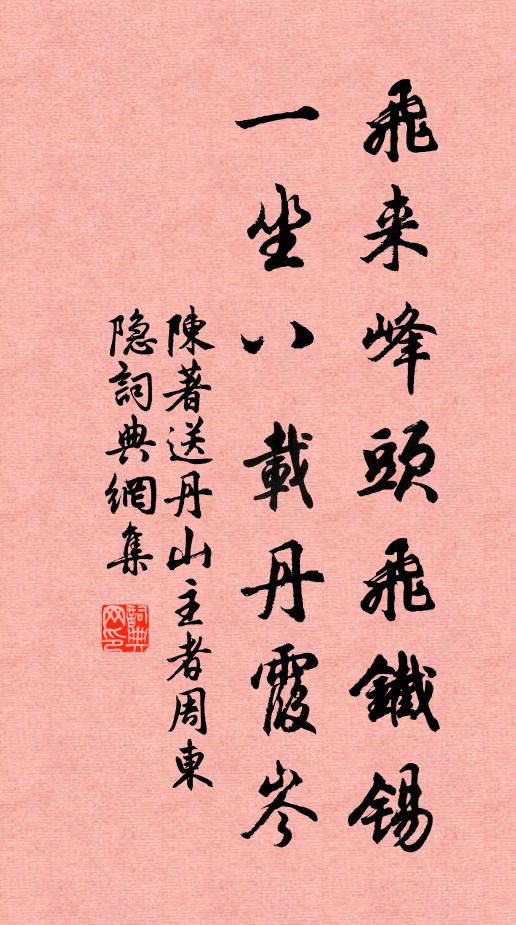 飛来峰頭飛鐵錫
一坐八載丹霞岑
陳著送丹山主者周東
隐詞典網集
詞典网印